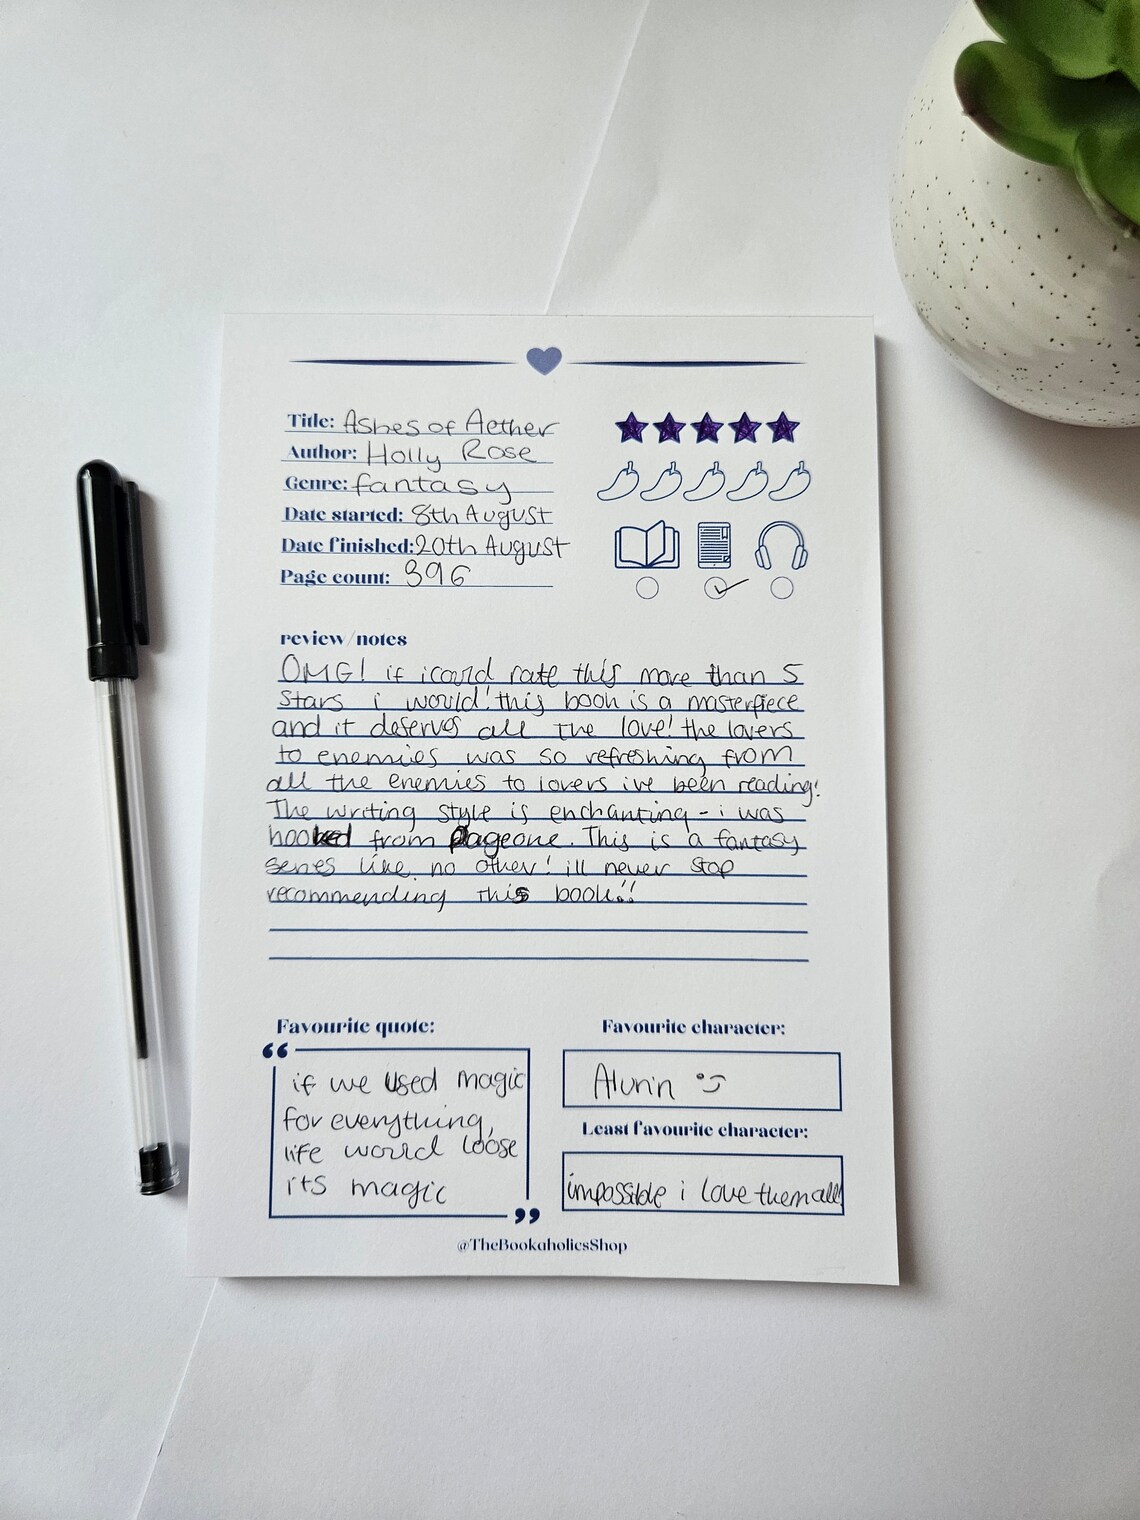 Title: Ashes of Aether
Author: Holly Rose
Genre: fantasy
Date started: 8th August
Date finished: 20th August
Page count: 396
review/notes
OMG! if i could rate this more than 5
stars i would! this book is a masterpiece
and it deserves all the love! the lovers
to enemies was so refreshing from
all the enemies to lovers ive been reading!
The writing style is enchanting - i was
hooked from page one. This is a fantasy
series like no other! ill never stop
recommending this book!!
Favourite quote:
“
if we used magic
for everything,
life would loose
its magic
”
Favourite character:
Alurin :)
Least favourite character:
impossible i love them all!
@TheBookaholicsShop